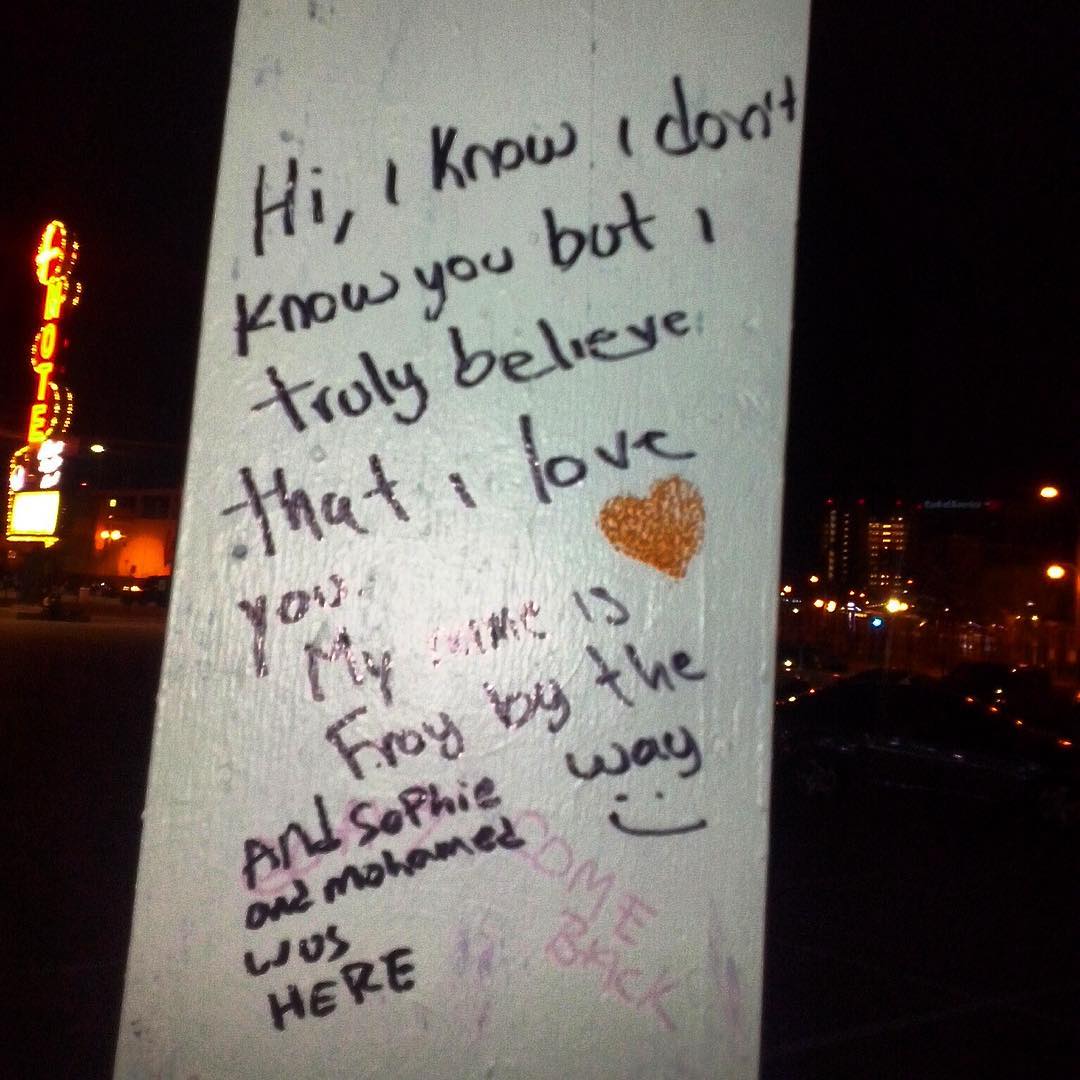 Hi, i know i don't
know you but i
truly believe
that i love
you.
My name is
Froy by the
way
And Sophie
and mohamed
was
HERE
COME
BACK